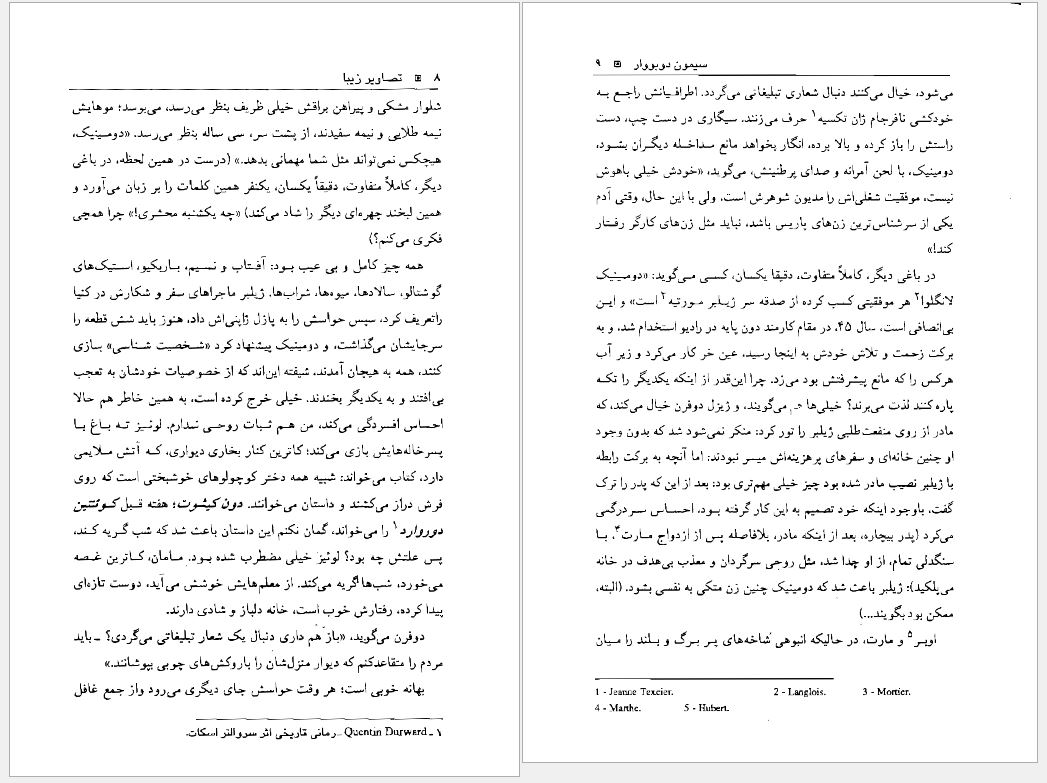 ۸ تصاویر زیبا
شلوار مشکی و پیراهن براقش خیلی ظریف بنظر می‌رسد، می‌بوسد؛ موهایش
نیمه طلایی و نیمه سفیدند، از پشت سر، سی ساله بنظر می‌رسد. «دومینیک،
هیچکس نمی‌تواند مثل شما مهمانی بدهد.» (درست در همین لحظه، در باغی
دیگر، کاملاً متفاوت، دقیقاً یکسان، یکنفر همین کلمات را بر زبان می‌آورد و
همین لبخند چهره‌ای دیگر را شاد می‌کند) «چه یکشنبه محشری!» چرا همچی
فکری می‌کنم؟)
همه چیز کامل و بی عیب بود: آفتاب و نسیم، باربکیو، استیک‌های
گوشتالو، سالادها، میوه‌ها، شراب‌ها. ژیلبر ماجراهای سفر و شکارش در کنیا
راتعریف کرد، سپس حواسش را به پازل ژاپنی‌اش داد، هنوز باید شش قطعه را
سرجایشان می‌گذاشت، و دومینیک پیشنهاد کرد «شخصیت شناسی» بازی
کنند، همه به هیجان آمدند، شیفته این‌اند که از خصوصیات خودشان به تعجب
بی‌افتند و به یکدیگر بخندند. خیلی خرج کرده است، به همین خاطر هم حالا
احساس افسردگی می‌کند، من هم ثبات روحی ندارم. لوئیز ته باغ با
پسرخاله‌هایش بازی می‌کند؛ کاترین کنار بخاری دیواری، که آتش ملایمی
دارد، کتاب می‌خواند: شبیه همه دختر کوچولوهای خوشبختی است که روی
فرش دراز می‌کشند و داستان می‌خوانند. دون کیشوت؛ هفته قبل کوئنتین
دوروارد۱ را می‌خواند، گمان نکنم این داستان باعث شد که شب گریه کند،
پس علتش چه بود؟ لوئیز خیلی مضطرب شده بود. مامان، کاترین غصه
می‌خورد، شب‌ها گریه می‌کند. از معلم‌هایش خوشش می‌آید، دوست تازه‌ای
پیدا کرده، رفتارش خوب است، خانه دلباز و شادی دارند.
دوفرن می‌گوید، «باز هم داری دنبال یک شعار تبلیغاتی می‌گردی؟ ـ باید
مردم را متقاعدکنم که دیوار منزل‌شان را باروکش‌های چوبی بپوشانند.»
بهانه خوبی است؛ هر وقت حواسش جای دیگری می‌رود واز جمع غافل
۱ ـ Quentin Durward ـ رمانی تاریخی اثر سروالتر اسکات.
سیمون دوبووار ۹
می‌شود، خیال می‌کنند دنبال شعاری تبلیغاتی می‌گردد. اطرافیانش راجع به
خودکشی نافرجام ژان تکسیه۱ حرف می‌زنند. سیگاری در دست چپ، دست
راستش را باز کرده و بالا برده، انگار بخواهد مانع مداخله دیگران بشود،
دومینیک، با لحن آمرانه و صدای پرطنینش، می‌گوید، «خودش خیلی باهوش
نیست، موفقیت شغلی‌اش را مدیون شوهرش است. ولی با این حال، وقتی آدم
یکی از سرشناس‌ترین زن‌های پاریس باشد، نباید مثل زن‌های کارگر رفتار
کند!»
در باغی دیگر، کاملاً متفاوت، دقیقا یکسان، کسی می‌گوید: «دومینیک
لانگلوا۲ هر موفقیتی کسب کرده از صدقه سر ژیلبر مورتیه۲ است» و این
بی‌انصافی است، سال ۴۵، در مقام کارمند دون پایه در رادیو استخدام شد، و به
برکت زحمت و تلاش خودش به اینجا رسید. عین خر کار می‌کرد و زیر آب
هرکس را که مانع پیشرفتش بود می‌زد. چرا این‌قدر از اینکه یکدیگر را تکه
پاره کنند لذت می‌برند؟ خیلی‌ها می‌گویند، و ژیزل دوفرن خیال می‌کند، که
مادر از روی منفعت‌طلبی ژیلبر را تور کرد: منکر نمی‌شود شد که بدون وجود
او چنین خانه‌ای و سفرهای پرهزینه‌اش میسر نبودند: اما آنچه به برکت رابطه
با ژیلبر نصیب مادر شده بود چیز خیلی مهم‌تری بود: بعد از این که پدر را ترک
گفت، باوجود اینکه خود تصمیم به این کار گرفته بود، احساس سردرگمی
می‌کرد (پدر بیچاره، بعد از اینکه مادر، بلافاصله پس از ازدواج مارت۴، با
سنگدلی تمام، از او جدا شد، مثل روحی سرگردان و معذب بی‌هدف در خانه
می‌پلکید)؛ ژیلبر باعث شد که دومینیک چنین زن متکی به نفسی بشود. (البته،
ممکن بود بگویند...)
اوبر۵ و مارت، در حالیکه انبوهی شاخه‌های پر برگ و بلند را میان
1 - Jeanne Texcier. 2 - Langlois. 3 - Mortier.
4 - Marthe. 5 - Hubert.